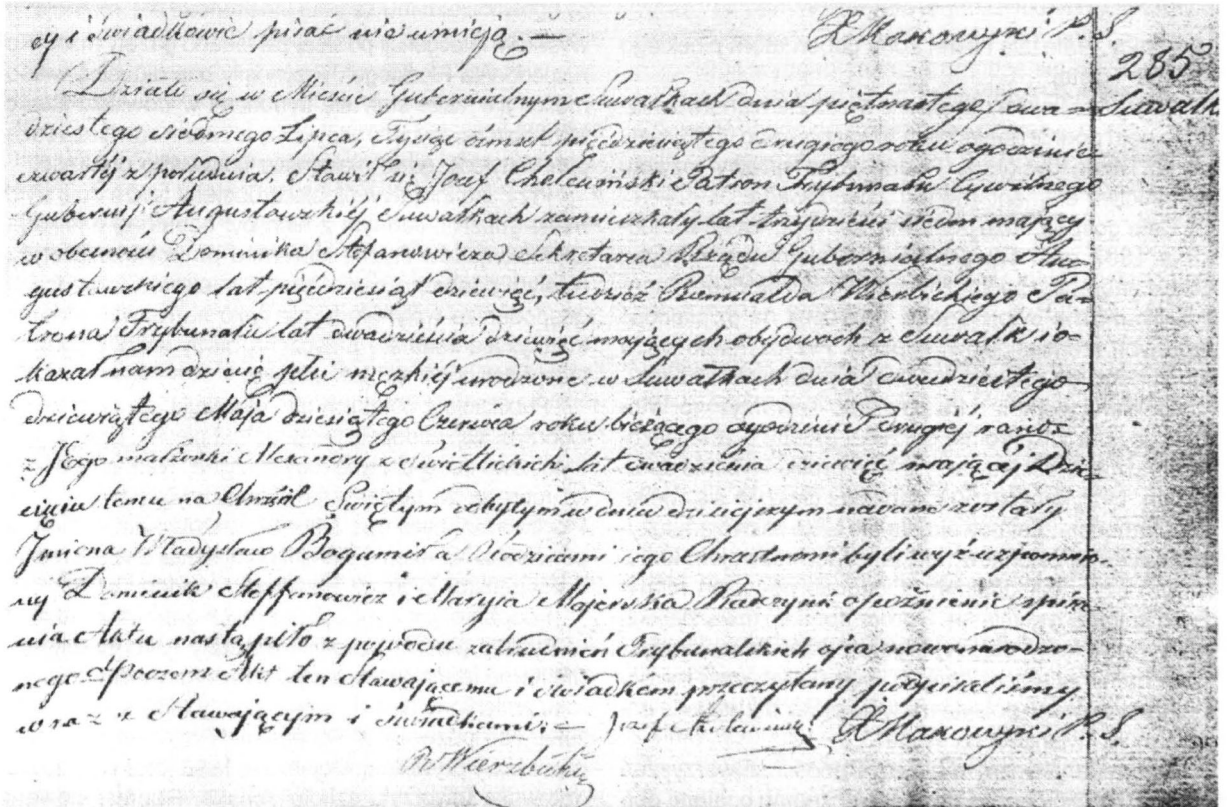 cy i Świadkowie pisać nie umieją = X Makowski P. S.
285
Działo się w Mieście Gubernialnym Suwałkach dnia piętnastego / dwa= Suwałk
dziestego siódmego Lipca, Tysiąc ośmset pięćdziesiątego drugiego roku o godzinie
czwartéj z południa. Stawił się Jozef Chełmiński Patron Trybunału Cywilnego
Gubernij Augustowskiéj w Suwałkach zamieszkały lat trzydzieści siedm mający
w obecności Dominika Stefanowicza Sekretarza Rządu Gubernialnego Au=
gustowskiego lat pięćdziesiąt dziewięć, tudzież Romualda Wierzbickiego Pa=
trona Trybunału lat dwadzieścia dziewięć mających obydwóch z Suwałk i o=
kazał nam dziecię płci męzkiéj urodzone w Suwałkach dnia dwudziestego
dziewiątego Maja dziesiątego Czerwca roku bieżącego o godzinie drugiéj z rana
z Jego małżonki Alexandry z lat dwadzieścia dziewięć mającéj Dzie=
cięciu temu na Chrzcie Świętym odbytym w dniu dzisiejszym nadane zostały
Imiona Władysław Bogumił a Rodzicami iego Chrzestnemi byli wyż wspomnio=
ny Dominik Steffanowicz i Maryia Majewska Radczyni opoźnienie spisa=
nia Aktu nastąpiło z powodu zatrudnień Trybunalskich ojca nowonarodzo=
nego. Poczem Akt ten Stawającemu i Świadkom przeczytany podpisaliśmy
wraz z Stawającym i Świadkami. = Jozef X Makowski P. S.
R Wierzbicki